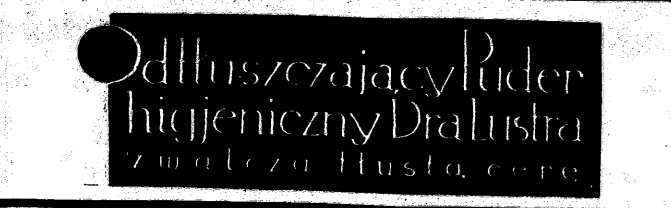 Odtłuszczający Puder
higjeniczny Dra Lustra
zwalcza tłustą cerę